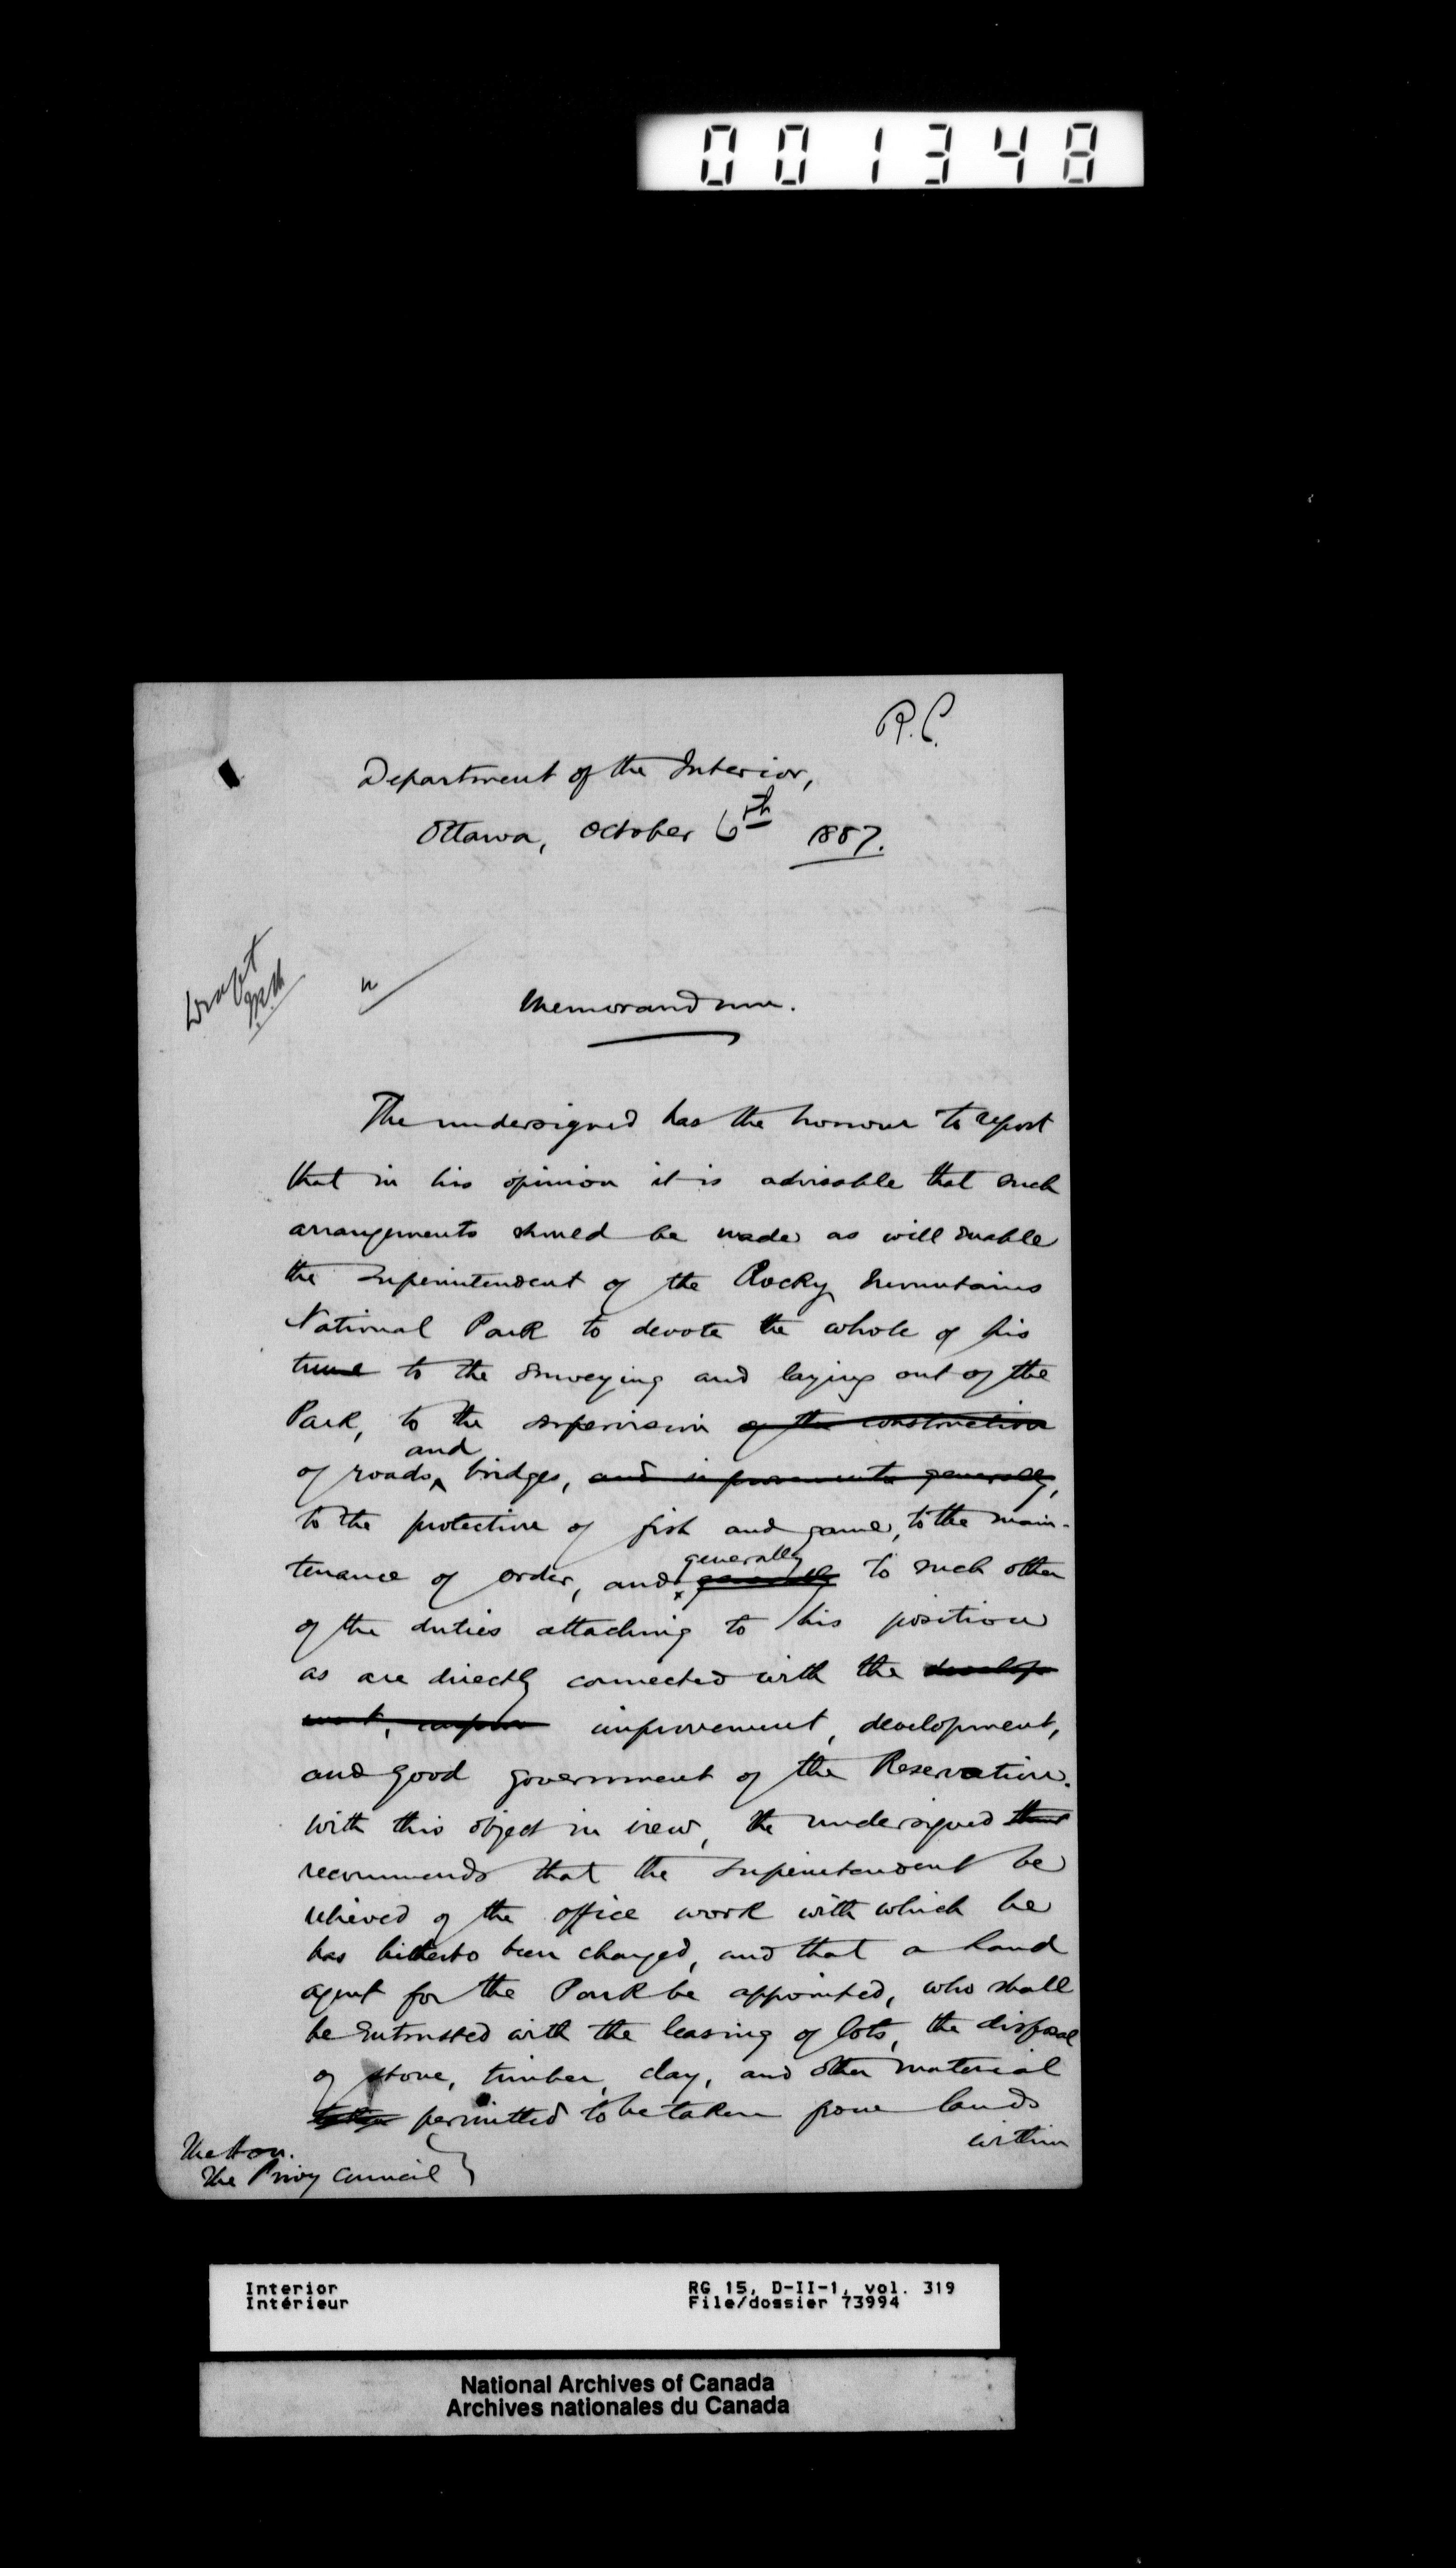 001348
R.C.
Department of the Interior,
Ottawa, October 6th 1887.
Draft
Memorandum.
The undersigned has the honour to report
that in his opinion it is advisable that such
arrangements should be made as will enable
the Superintendent of the Rocky Mountains
National Park to devote the whole of his
time to the surveying and laying out of the
Park, to the supervision of the construction
and
of roads, bridges, and improvements generally,
to the protection of fish and game, to the main-
generally
tenance of order, and generally to such other
of the duties attaching to his position
as are directly connected with the develop
ment, improve improvement, development,
and good government of the Reservation.
With this object in view, the undersigned that
recommends that the Superintendent be
relieved of the office work with which he
has hitherto been charged, and that a land
agent for the Park be appointed, who shall
be entrusted with the leasing of lots, the disposal
of stone, timber, clay, and other material
taken permitted to be taken from lands
within
The Hon.
The Privy Council
Interior
Intérieur
RG 15, D-II-1, vol. 319
File/dossier 73994
National Archives of Canada
Archives nationales du Canada